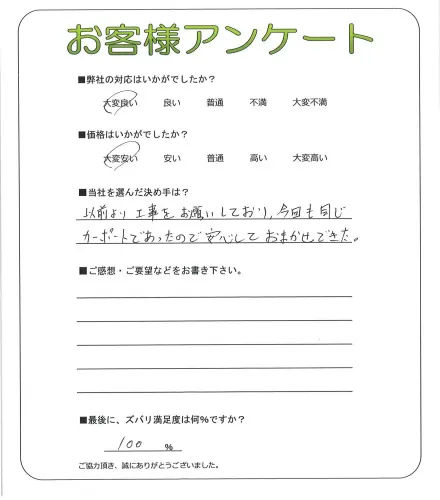 お客様アンケート
■弊社の対応はいかがでしたか？
大変良い 良い 普通 不満 大変不満
■価格はいかがでしたか？
大変安い 安い 普通 高い 大変高い
■当社を選んだ決め手は？
以前より工事をお願いしており,今回も同じ
カーポートであったので安心しておまかせできた。
■ご感想・ご要望などをお書き下さい。
■最後に、ズバリ満足度は何%ですか？
100 %
ご協力頂き、誠にありがとうございました。